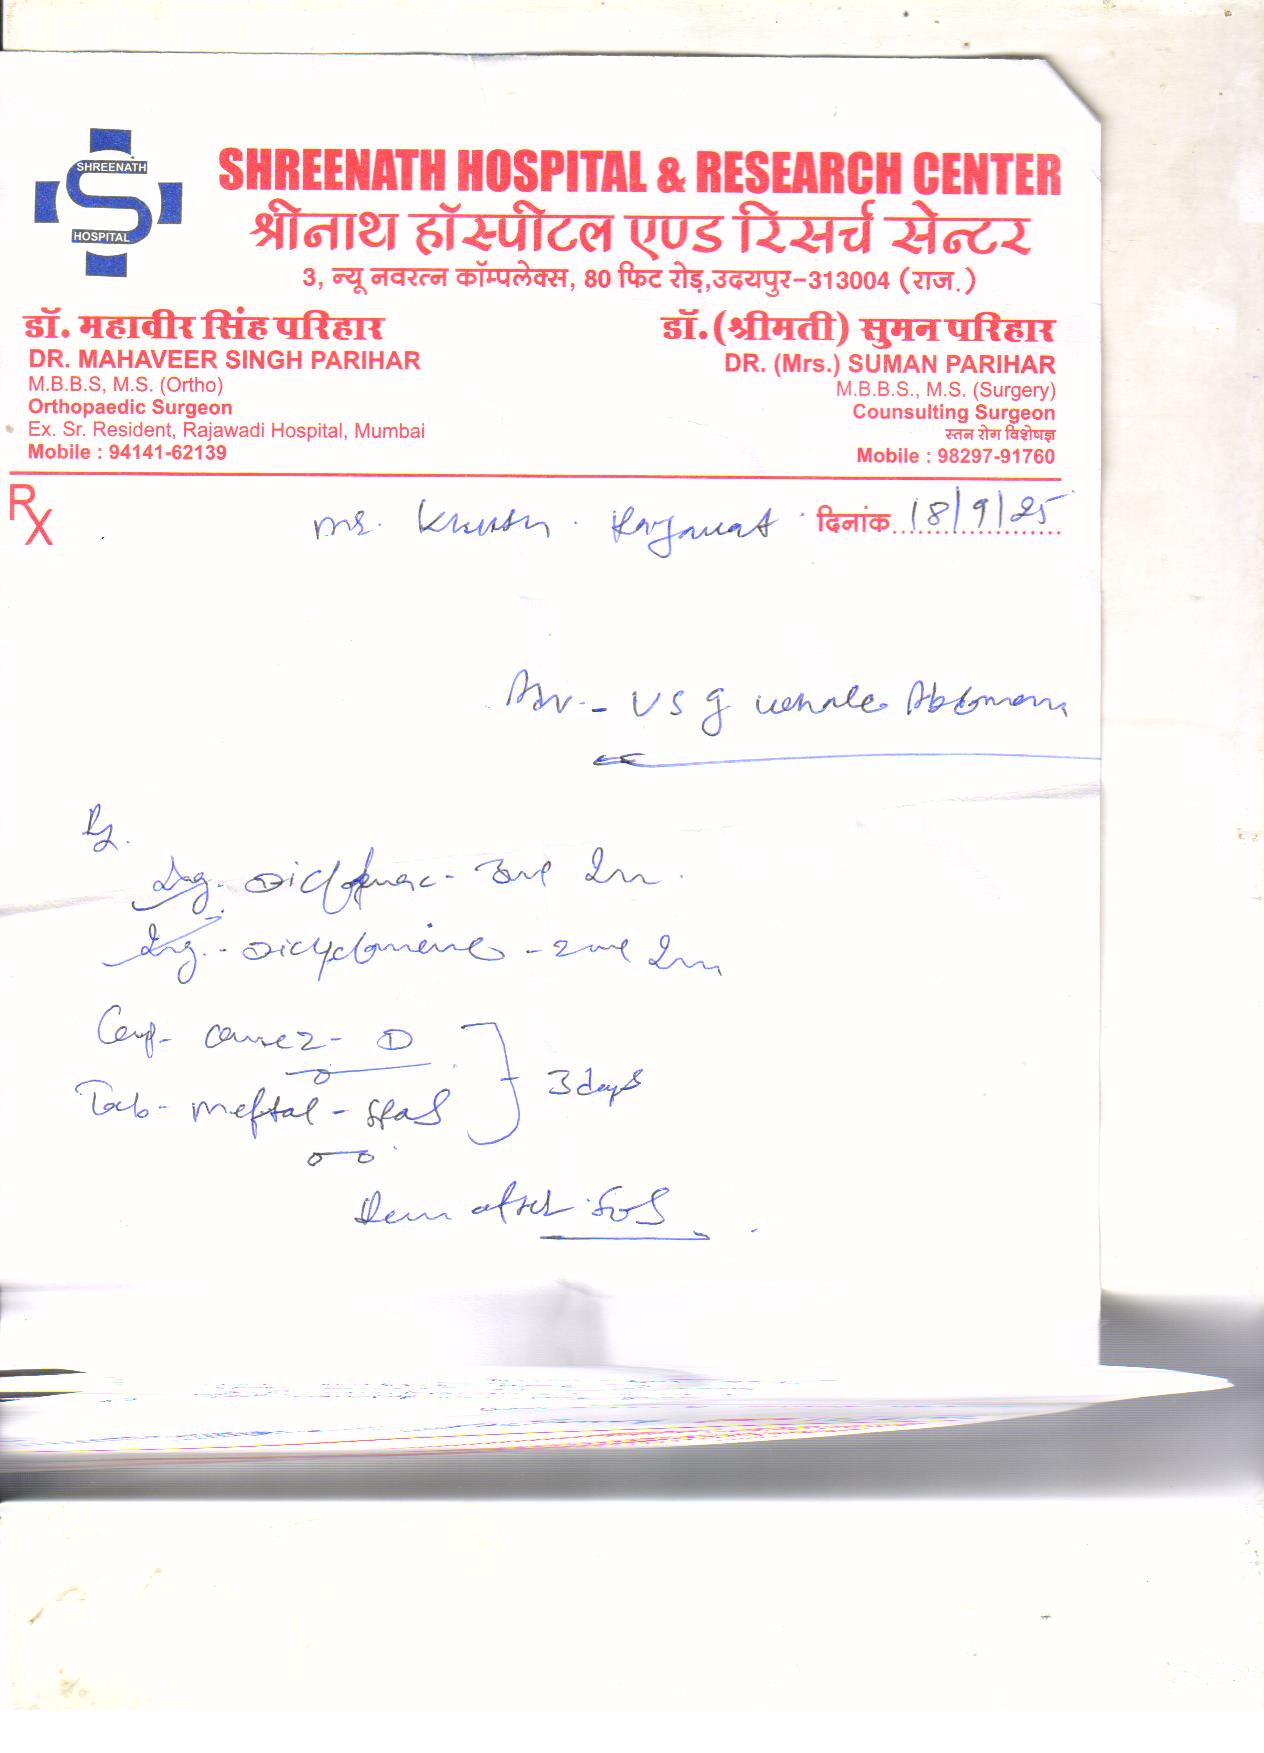 SHREENATH
HOSPITAL
SHREENATH HOSPITAL & RESEARCH CENTER
श्रीनाथ हॉस्पीटल एण्ड रिसर्च सेन्टर
3, न्यू नवरत्न कॉम्पलेक्स, 80 फिट रोड़,उदयपुर-313004 (राज.)
डॉ. महावीर सिंह परिहार
DR. MAHAVEER SINGH PARIHAR
M.B.B.S, M.S. (Ortho)
Orthopaedic Surgeon
Ex. Sr. Resident, Rajawadi Hospital, Mumbai
Mobile : 94141-62139
डॉ.(श्रीमती) सुमन परिहार
DR. (Mrs.) SUMAN PARIHAR
M.B.B.S., M.S. (Surgery)
Counsulting Surgeon
स्तन रोग विशेषज्ञ
Mobile : 98297-91760
Rx
Mr. Khush दिनांक 18/9/25
Adv. - USG whole Abdomen
Rx.
Inj. Diclofenac - 3ml Im.
Inj. - Dicyclomine - 2ml Im
Cap - D
Tab - Meftal - Spas
3 days
after SOS